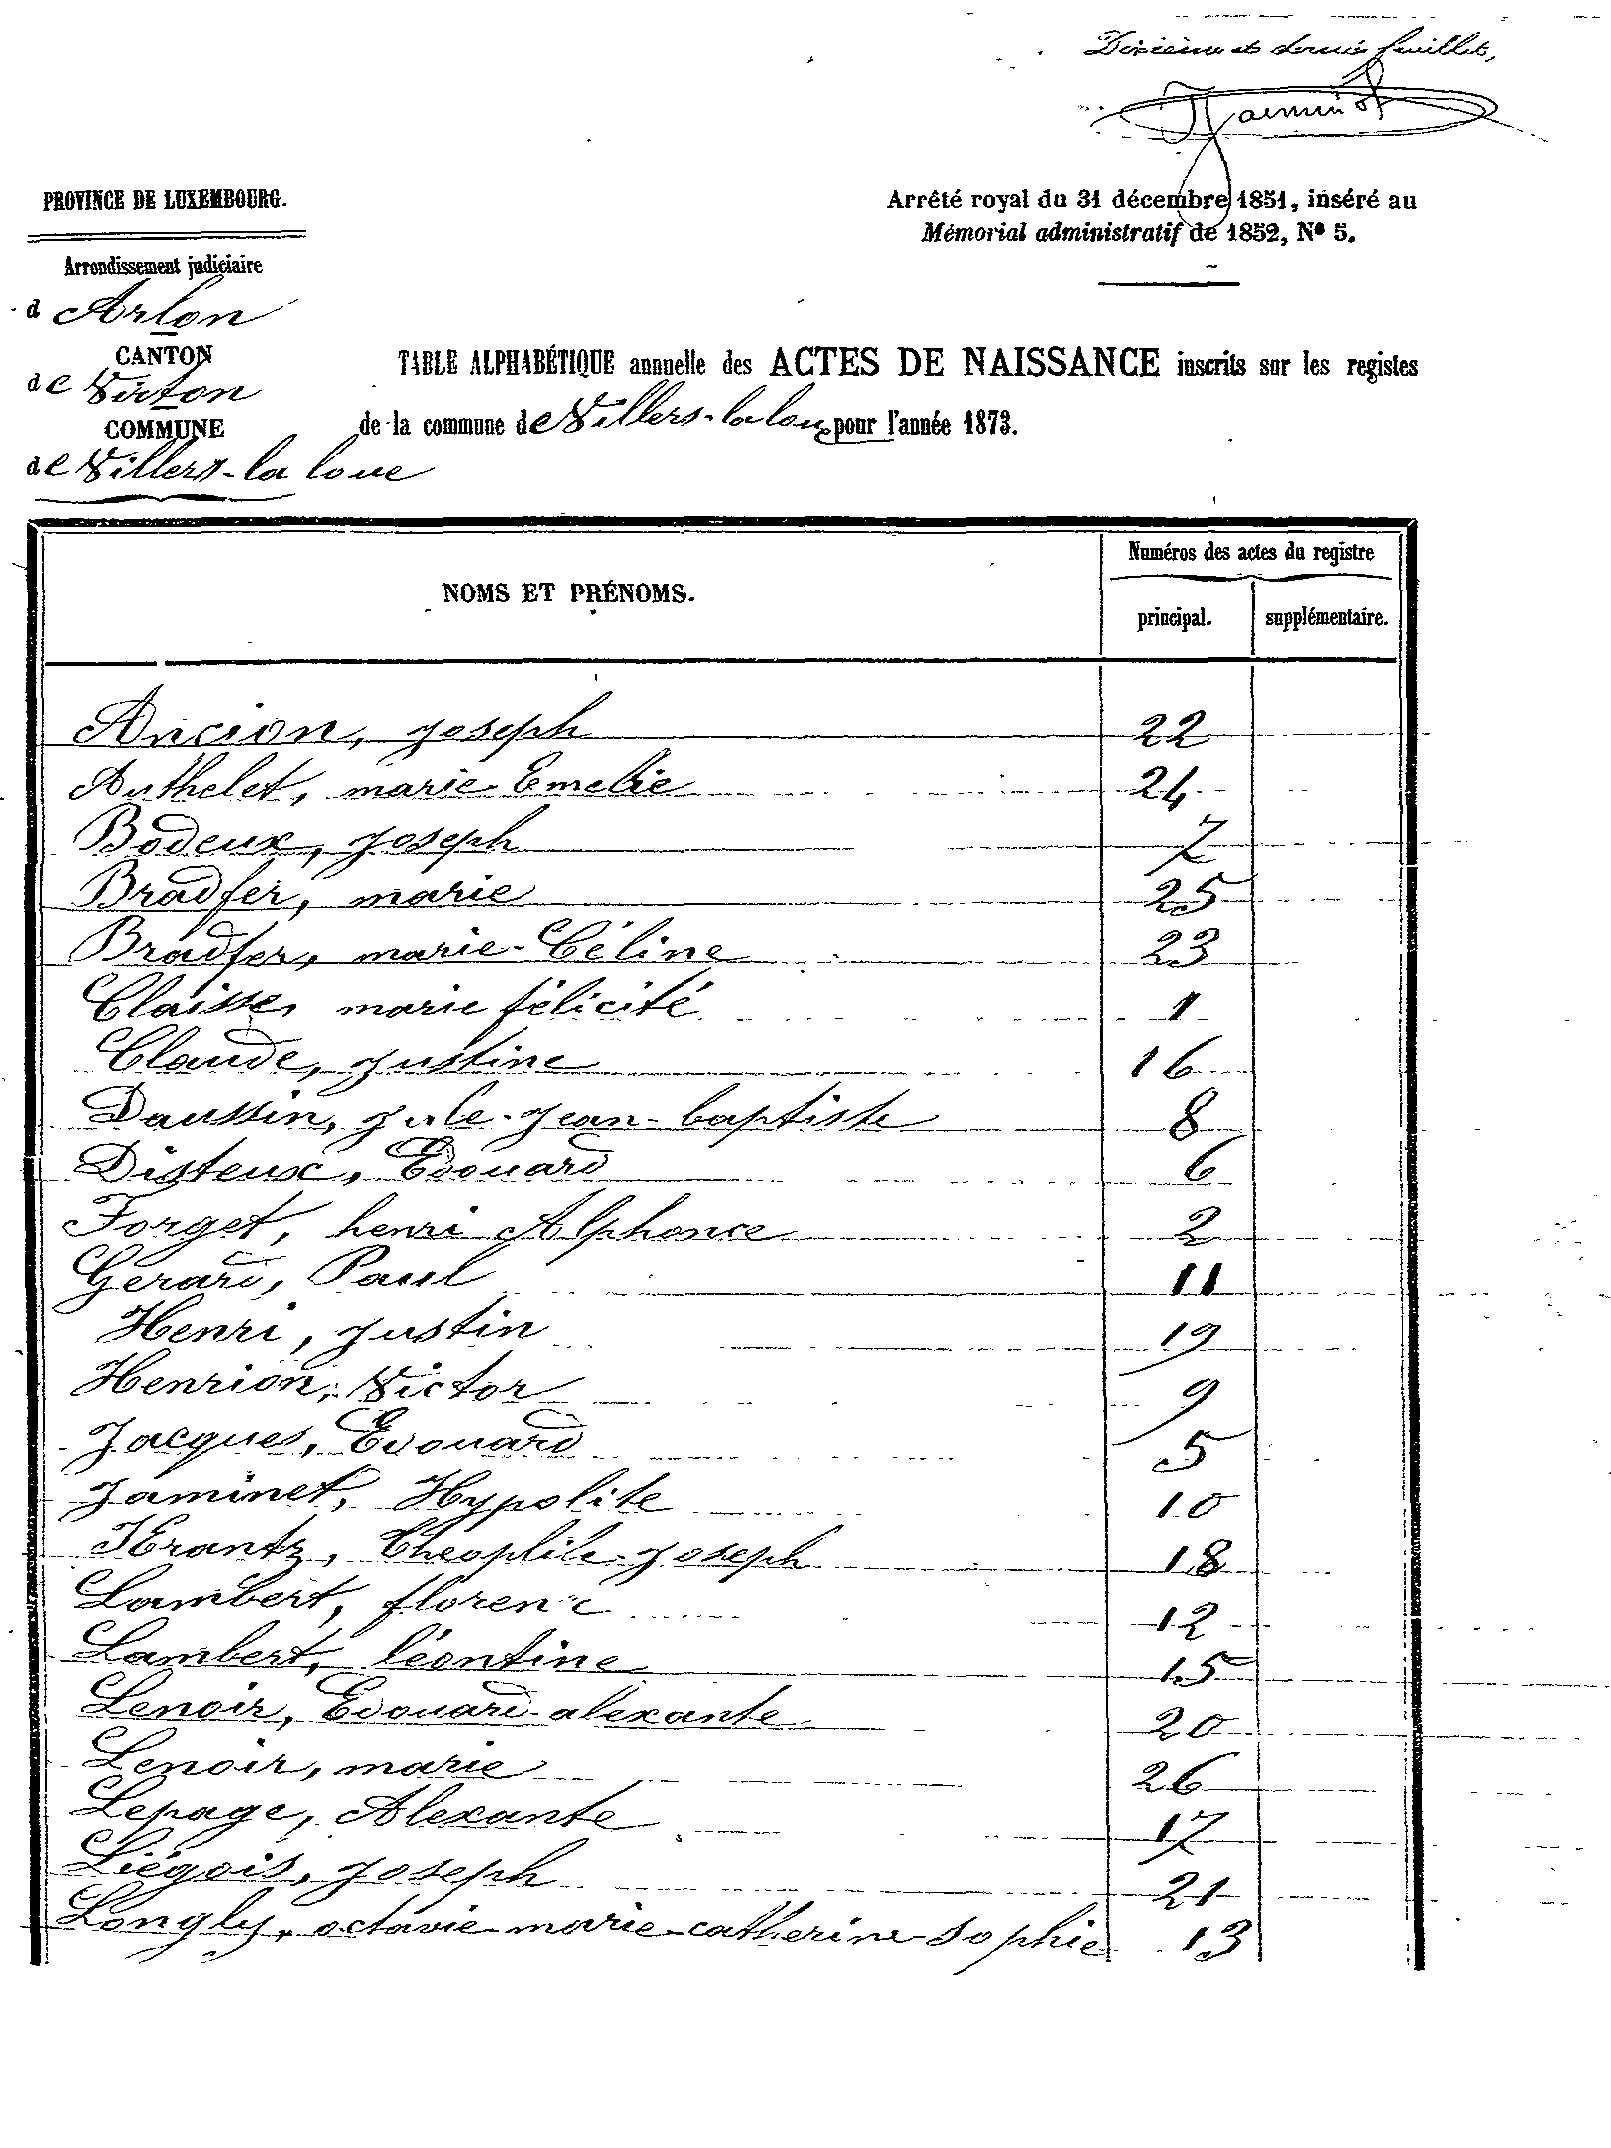 Dixième et dernier feuillet,
PROVINCE DE LUXEMBOURG.
Arrêté royal du 31 décembre 1851, inséré au
Mémorial administratif de 1852, N° 5.
Arrondissement judiciaire
d Arlon
CANTON
de Virton
COMMUNE
de Villers-la loue
TABLE ALPHABÉTIQUE annuelle des ACTES DE NAISSANCE inscrits sur les registes
de la commune de Villers-la loue pour l'année 1873.
NOMS ET PRÉNOMS.
Numéros des actes du registre
principal. supplémentaire.
Ancion, joseph 22
Authelet, marie Emelie 24
Bodeux, joseph 7
Bradfer, marie 25
Bradfer, marie-Céline 23
Claisse, marie félicité 1
Claude, justine 16
Daussin, jule-jean-baptiste 8
Disteux, Edouard 6
Forget, henri Alphonce 2
Gerard, Paul 11
Henri, justin 19
Henrion, Victor 9
Jacques, Edouard 5
Jaminet, Hypolite 10
Krantz, Théophile-joseph 18
Lambert, 12
Lambert, léontine 15
Lenoir, Edouard-alexante 20
Lenoir, marie 26
Lepage, Alexante 17
Liégois, joseph 21
Longly, octavie-marie-catherine-sophie 13